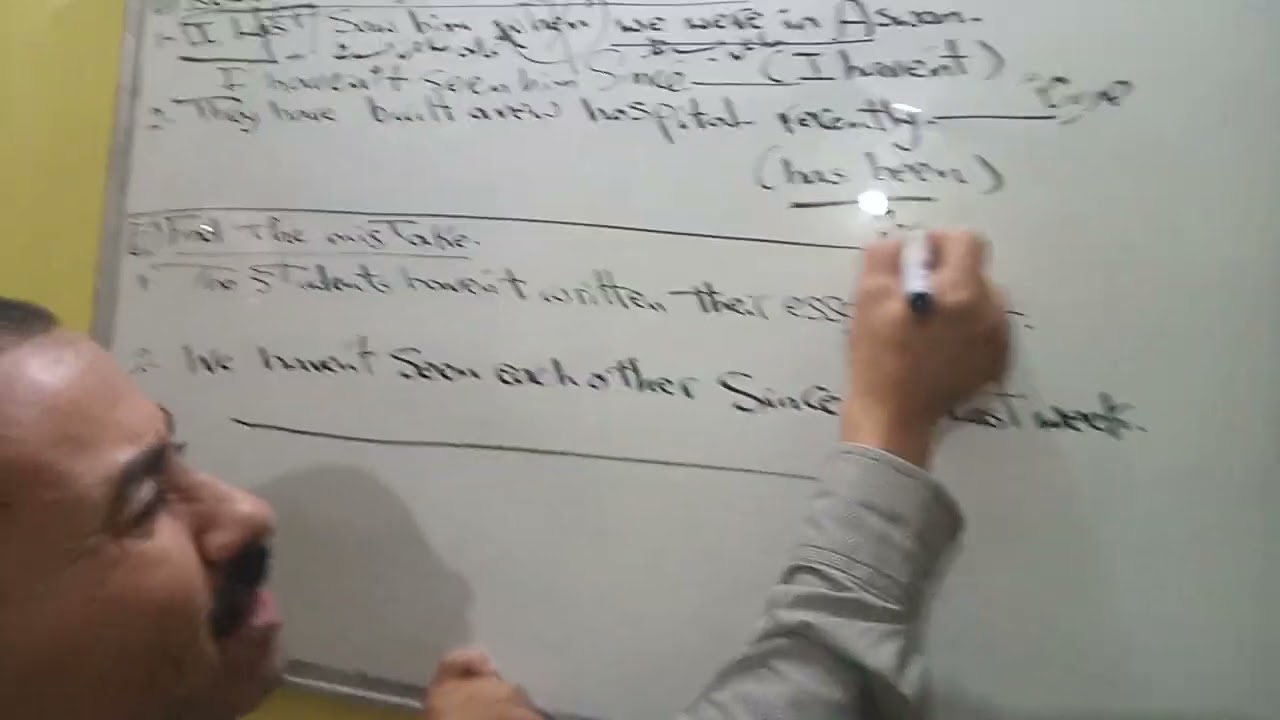 1- I last saw him when we were in Aswan.
I haven't seen him since (I havent)
2- They have built a new hospital recently.
(has been)
Find the mistake.
1- The students haven't written their ess
2- We havent seen each other Since last week.